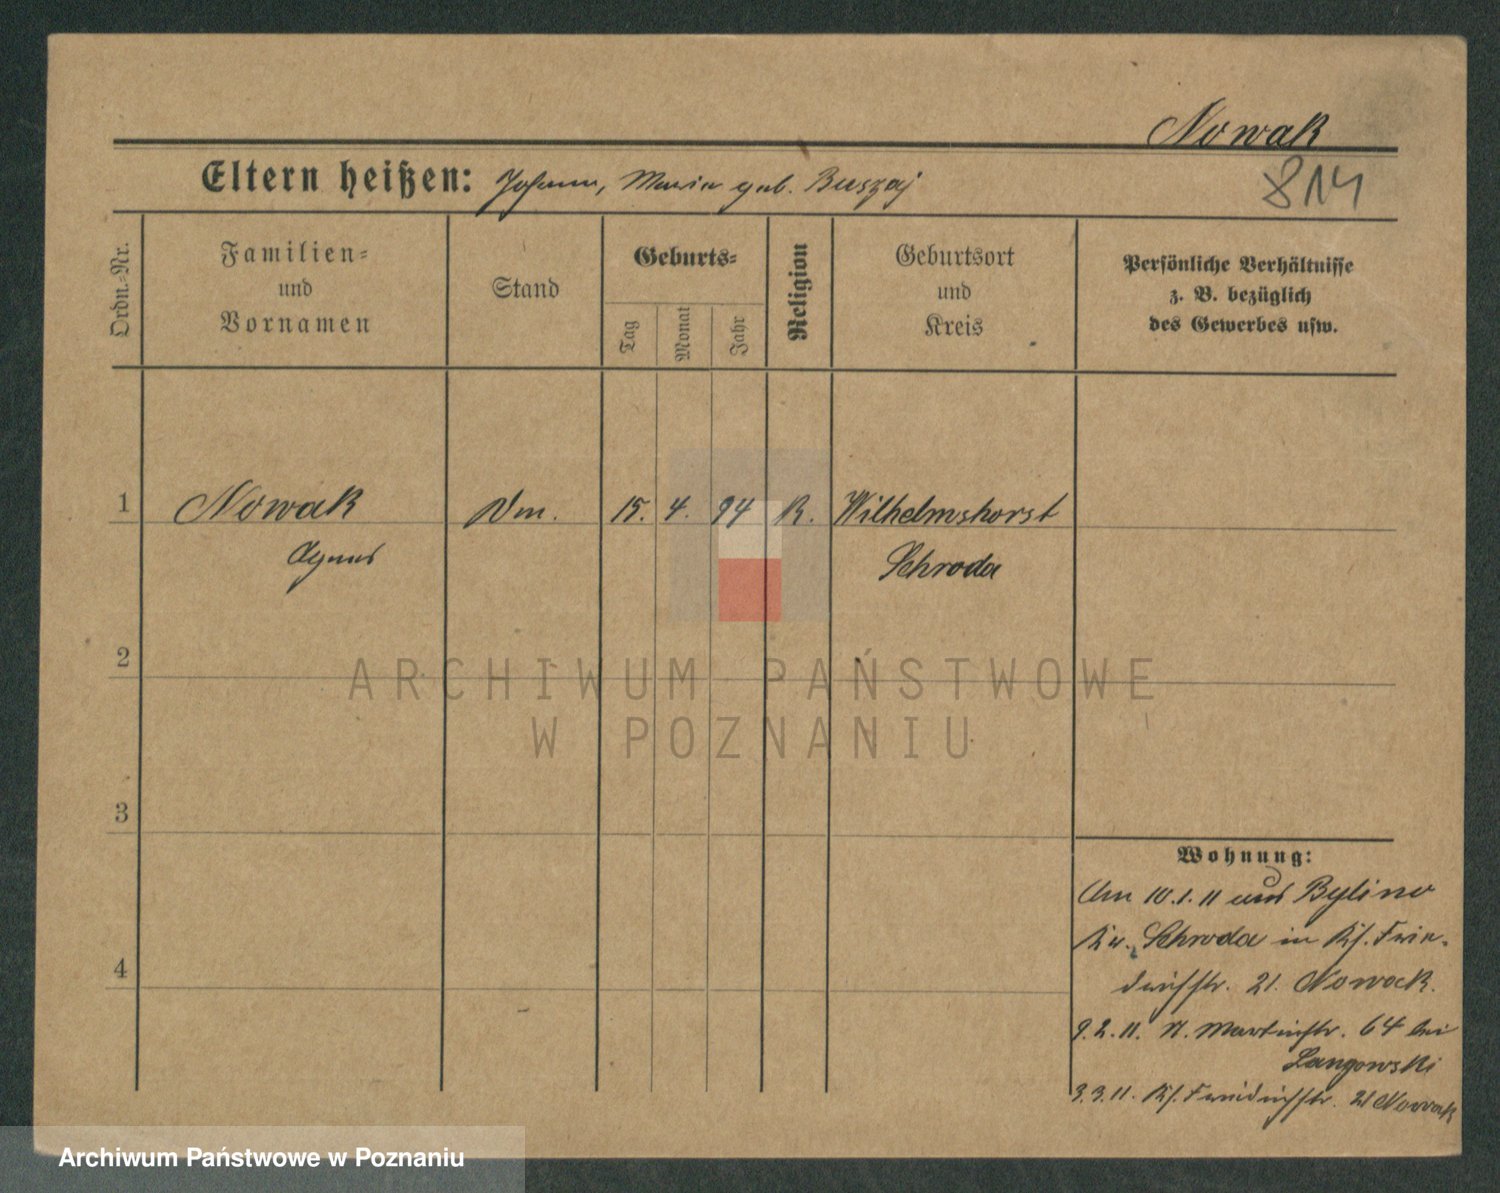 Nowak
814
Eltern heißen: Johann, Maria geb. Buszaj
Ordn.=Nr.
Familien=
und
Vornamen
Stand
Geburts=
Tag
Monat
Jahr
Religion
Geburtsort
und
Kreis
Persönliche Verhältnisse
z. B. bezüglich
des Gewerbes usw.
1 Nowak 15. 4. 94 K. Wilhelmshorst
Agnes Schroda
2
3
4
ARCHIWUM PAŃSTWOWE
W POZNANIU
Wohnung:
Am 10.1.11 aus Bylino
Kr. Schroda in Frie-
drichstr. 21. Nowack.
9.2.11. Martinstr. 64 bei
Langowski
3.3.11. Friedrichstr. 21 Nowak
Archiwum Państwowe w Poznaniu